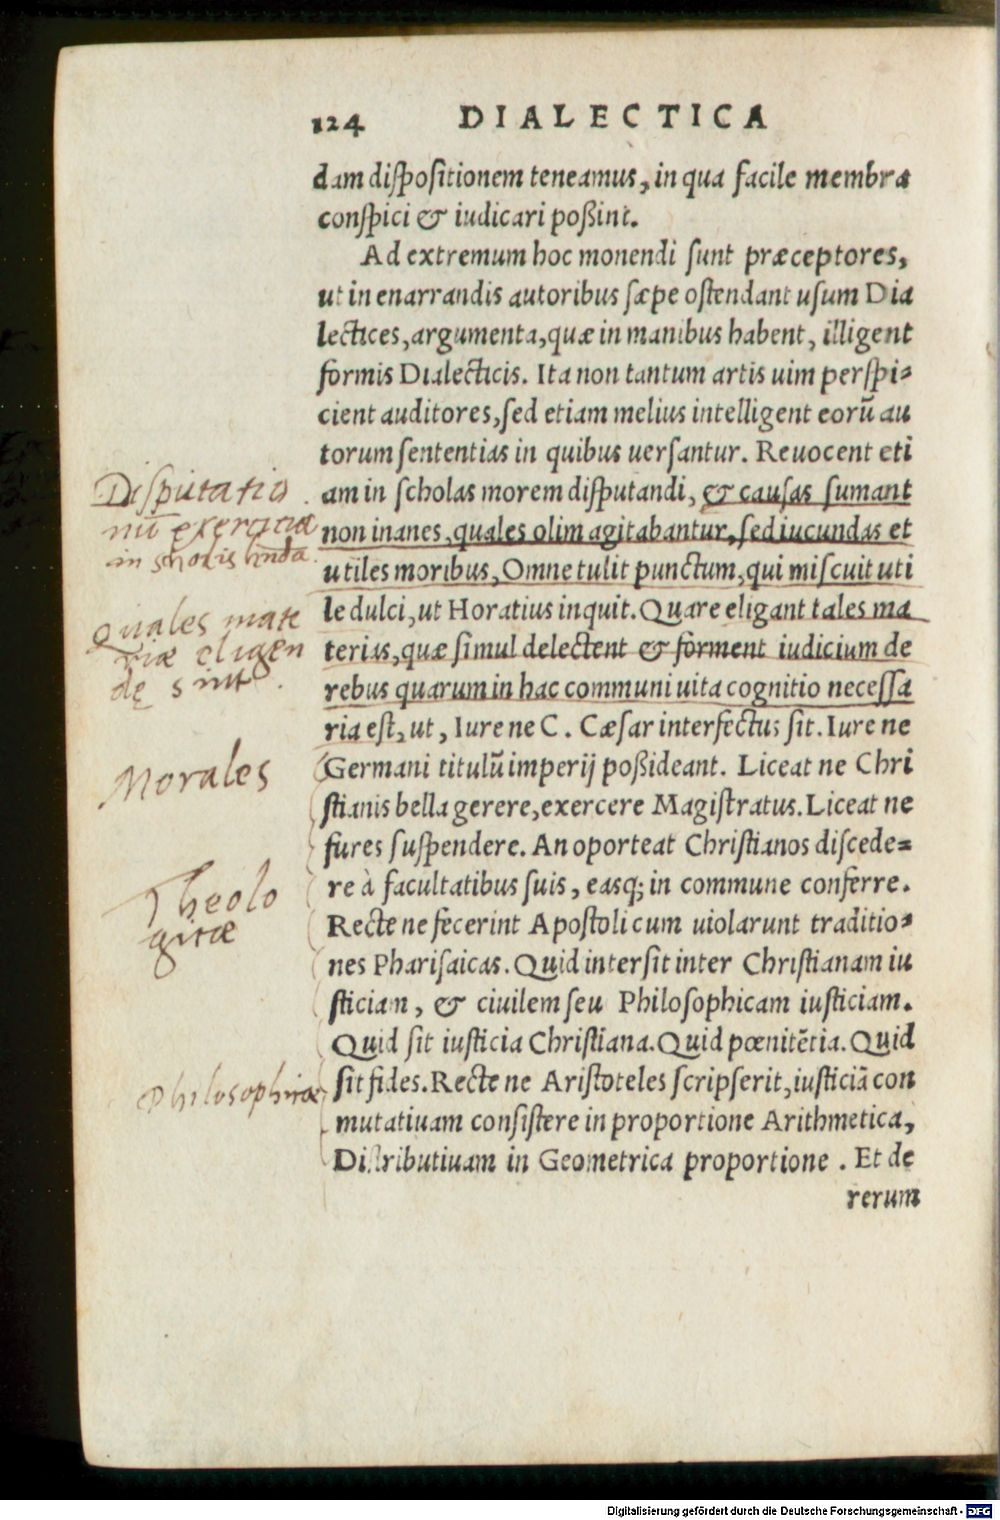 124 DIALECTICA
dam diſpoſitionem teneamus, in qua facile membra
conſpici & iudicari poßint.
Ad extremum hoc monendi ſunt præceptores,
ut in enarrandis autoribus ſæpe oſtendant uſum Dia
lectices, argumenta, quæ in manibus habent, illigent
formis Dialecticis. Ita non tantum artis uim perſpi⸗
cient auditores, ſed etiam melius intelligent eorũ au
torum ſententias in quibus uerſantur. Reuocent eti
Diſputatio
am in ſcholas morem diſputandi, & cauſas ſumant
nū exercitia
non inanes, quales olim agitabantur, ſed iucundas et
in scholis
utiles moribus, Omne tulit punctum, qui miſcuit uti
Quales mate
le dulci, ut Horatius inquit. Quare eligant tales ma
riæ eligen
terias, quæ ſimul delectent & forment iudicium de
dę sint.
rebus quarum in hac communi uita cognitio neceſſa
ria eſt, ut, Iure ne C. Cæſar interfectus ſit. Iure ne
Morales
Germani titulũ imperij poßideant. Liceat ne Chri
ſtianis bella gerere, exercere Magiſtratus. Liceat ne
fures ſuſpendere. An oporteat Chriſtianos diſcede⸗
Theolo
re à facultatibus ſuis, easq; in commune conferre.
gicæ
Recte ne fecerint Apoſtoli cum uiolarunt traditio⸗
nes Phariſaicas. Quid interſit inter Chriſtianam iu
ſticiam, & ciuilem ſeu Philoſophicam iuſticiam.
Quid ſit iuſticia Chriſtiana. Quid pœnitẽtia. Quid
Philosophicæ
ſit fides. Recte ne Ariſtoteles ſcripſerit, iuſticiã con
mutatiuam conſiſtere in proportione Arithmetica,
Diſtributiuam in Geometrica proportione. Et de
rerum
Digitalisierung gefördert durch die Deutsche Forschungsgemeinschaft - DFG